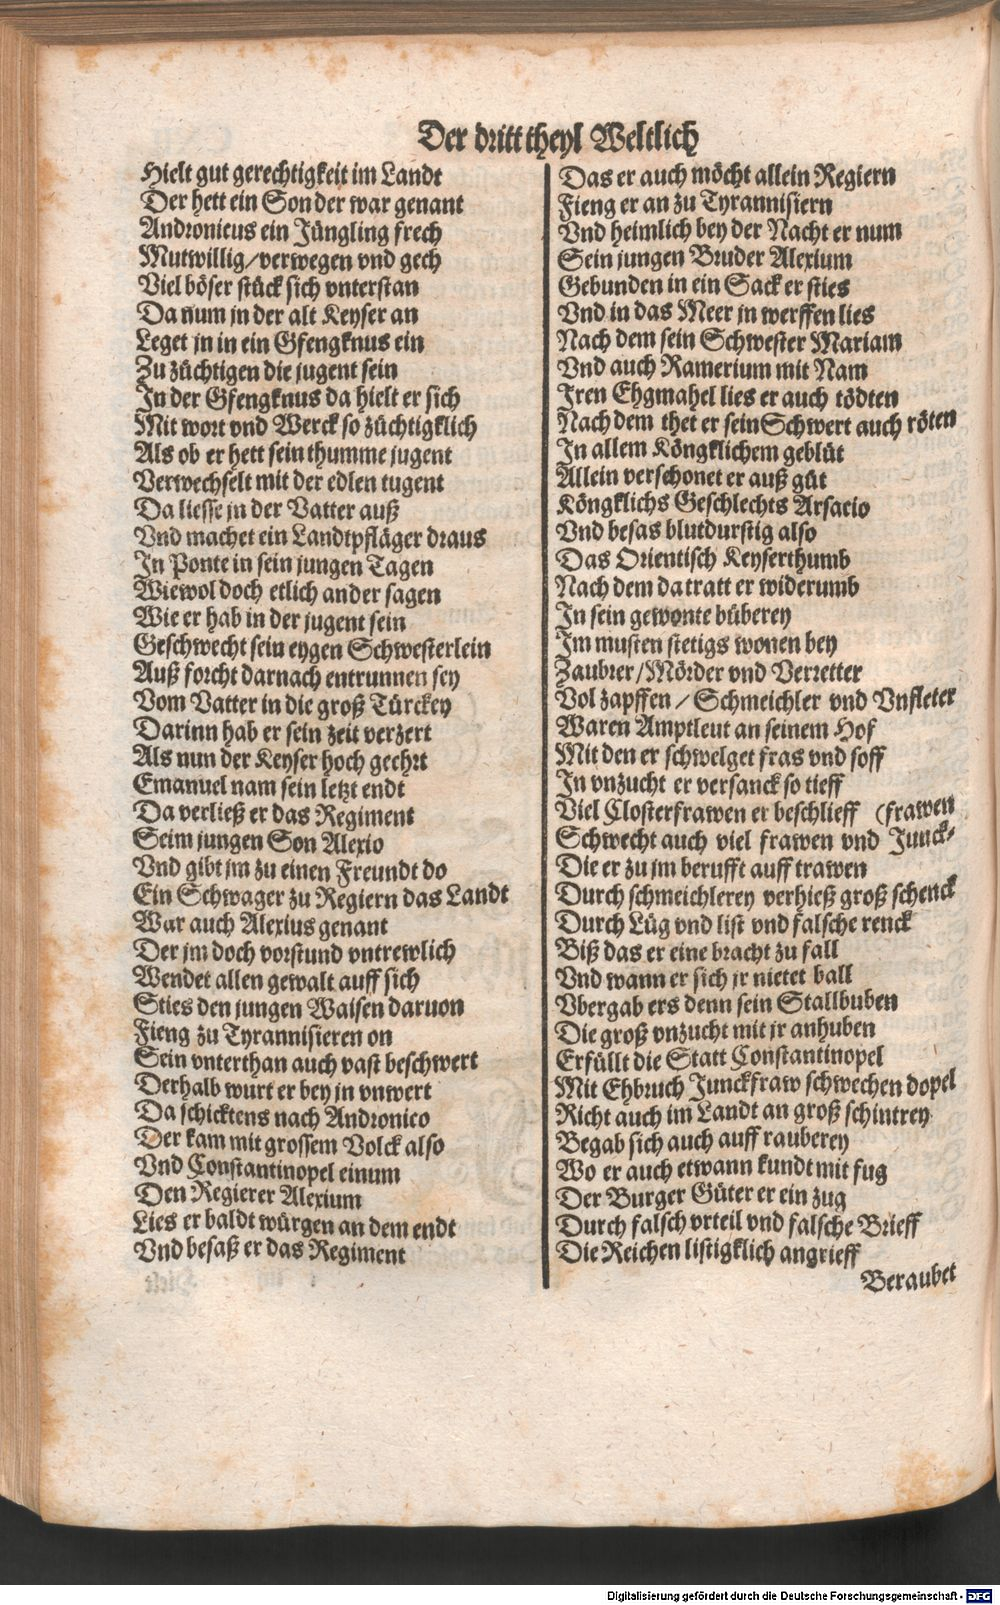 Der dritt theyl Weltlich
Hielt gut gerechtigkeit im Landt
Der hett ein Son der war genant
Andronicus ein Jüngling frech
Mutwillig/verwegen vnd gech
Viel böser stück sich vnterstan
Da num jn der alt Keyser an
Leget jn in ein Gfengknus ein
Zu züchtigen die jugent sein
In der Gfengknus da hielt er sich
Mit wort vnd Werck so züchtigklich
Als ob er hett sein thumme jugent
Verwechselt mit der edlen tugent
Da liesse jn der Vatter auß
Vnd machet ein Landtpfläger draus
In Ponte in sein jungen Tagen
Wiewol doch etlich ander sagen
Wie er hab in der jugent sein
Geschwecht sein eygen Schwesterlein
Auß forcht darnach entrunnen sey
Vom Vatter in die groß Türckey
Darinn hab er sein zeit verzert
Als nun der Keyser hoch geehrt
Emanuel nam sein letzt endt
Da verließ er das Regiment
Seim jungen Son Alexio
Vnd gibt jm zu einen Freundt do
Ein Schwager zu Regiern das Landt
War auch Alexius genant
Der jm doch vorstund vntrewlich
Wendet allen gewalt auff sich
Sties den jungen Waisen daruon
Fieng zu Tyrannisieren on
Sein vnterthan auch vast beschwert
Derhalb wurt er bey jn vnwert
Da schicktens nach Andronico
Der kam mit grossem Volck also
Vnd Constantinopel einum
Den Regierer Alexium
Lies er baldt würgen an dem endt
Vnd besaß er das Regiment
Das er auch möcht allein Regiern
Fieng er an zu Tyrannisiern
Vnd heimlich bey der Nacht er num
Sein jungen Bruder Alexium
Gebunden in ein Sack er sties
Vnd in das Meer jn werffen lies
Nach dem sein Schwester Mariam
Vnd auch Ramerium mit Nam
Iren Ehgmahel lies er auch tödten
Nach dem thet er sein Schwert auch röten
In allem Köngklichem geblüt
Allein verschonet er auß güt
Köngklichs Geschlechts Arsacio
Vnd besas blutdurstig also
Das Orientisch Keyserthumb
Nach dem da tratt er widerumb
In sein gewonte büberey
Im musten stetigs wonen bey
Zaubrer/Mörder vnd Verretter
Vol zapffen / Schmeichler vnd Vnfleter
Waren Amptleut an seinem Hof
Mit den er schwelget fras vnd soff
In vnzucht er versanck so tieff
Viel Closterfrawen er beschlieff (frawen
Schwecht auch viel frawen vnd Junck-
Die er zu jm berufft auff trawen
Durch schmeichlerey verhieß groß schenck
Durch Lüg vnd list vnd falsche renck
Biß das er eine bracht zu fall
Vnd wann er sich jr nietet ball
Vbergab ers denn sein Stallbuben
Die groß vnzucht mit jr anhuben
Erfüllt die Statt Constantinopel
Mit Ehbruch Junckfraw schwechen dopel
Richt auch im Landt an groß schintrey
Begab sich auch auff rauberey
Wo er auch etwann kundt mit fug
Der Burger Güter er ein zug
Durch falsch vrteil vnd falsche Brieff
Die Reichen listigklich angrieff
Beraubet
Digitalisierung gefördert durch die Deutsche Forschungsgemeinschaft - DFG